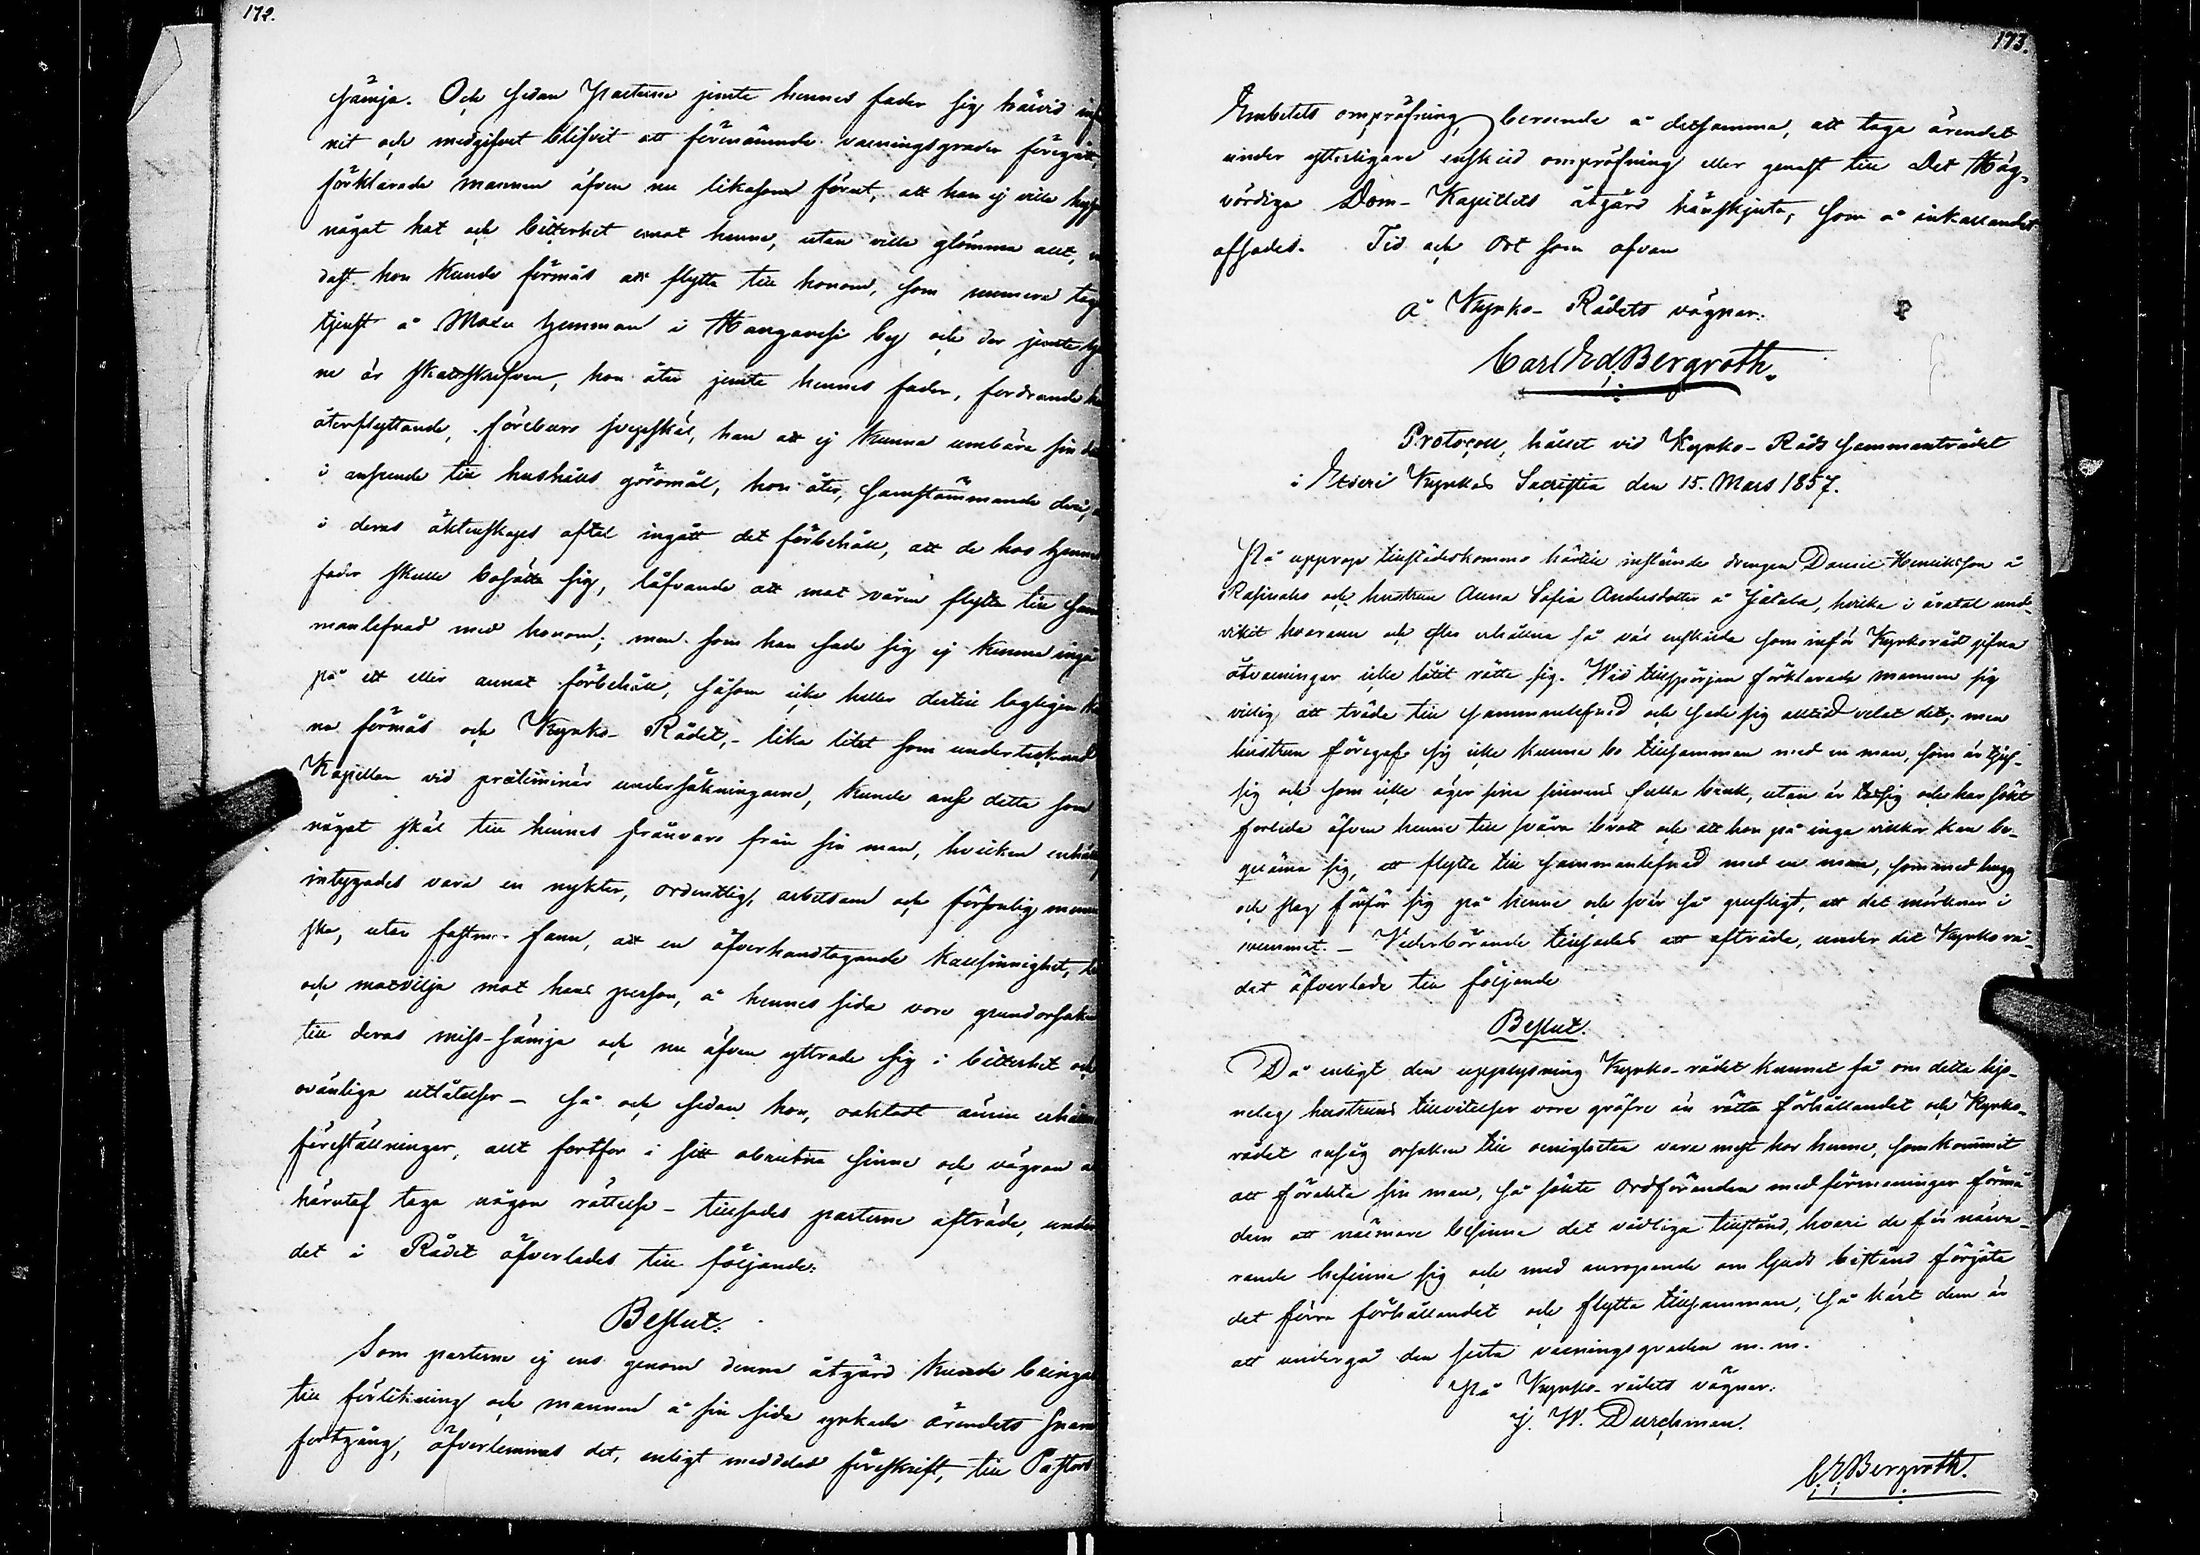 172.
sämja. Och sedan Parterne jemte hennes fader sig härvid
nit och medgifvet blifvit att förenämnde varningsgrader föregått,
förklarade mannen äfven nu likasom förut, att han ej ville hysa
något hat och bitterhet emot henne, utan ville glömma allt,
dast hon kunde förmås att flytta till honom, som numera
tjenst å hemman i by och der jemte
ne är skattskrifven, hon åter jemte hennes fader, fordrande
återflyttande, förebärs svepskäl, han att ej kunna umbära sin
i anseende till hushålls göromål, hon åter, samstämmande deri,
i deras äktenskaps aftal ingått det förbehåll, att de hos hennes
fader skulle bosätta sig, låfvande att mot våren flytta till sam
manlefnad med honom; men som han sade sig ej kunna ingå
på ett eller annat förbehåll, såsom icke heller dertill lagligen
na förmås och Kyrko-Rådet,- lika litet som undertecknad
Kapellan vid præliminär undersökningarne, kunde anse detta som
något skäl till hennes frånvaro från sin man, hvilken
intygades vara en nykter, ordentlig, arbetsam och försonlig menni
ska, utan fastmer fann, att en öfverhandtagande kallsinnighet,
och motvilja mot hans person, å hennes sida vore grundorsaken
till deras miss-sämja och nu äfven yttrade sig i bitterhet och
ovänliga utlåtelser - så och sedan hon, oaktadt
föreställningar, allt fortfor i sitt obrutna sinne och vägran
härutaf taga någon rättelse - tillsades parterne afträda, under
det i Rådet öfverlades till följande:
Beslut:
Som parterne ej ens genom denna åtgärd kunde bringas
till förlikning och mannen å sin sida yrkade ärendets
fortgång, öfverlemnas det, enligt meddelad föreskrift, till Pastors
173.
Embetets ompröfning, beroende å detsamma, att taga ärendet
under ytterligare enskild ompröfning eller genast till Det Hög-
vördiga Dom-Kapitlets åtgärd hänskjuta, som å inkallandet
afsades. Tid och Ort som ofvan
å Kyrko-Rådets vägnar:
Carl Ed. Bergroth.
Protocoll, hållet vid Kyrko-Råds sammanträdet
i Etseri Kyrkas Sacristia den 15. Mars 1857.
På upprop tillstädeskommo härtill instämde drengen Daniel Henriksson å
och hustrun Anna Sofia Andersdotter å hvilka i åratal und-
vikit hvarann och efter erhållna så väl enskilda som inför Kyrkoråd gifna
åtvarningar icke låtit rätta sig. Wid tillspörjan förklarade mannen sig
villig att träda till sammanlefnad och sade sig alltid velat det; men
hustrun föregaf sig icke kunna bo tillsamman med en man, som är
sig och som icke äger sina sinnens fulla bruk, utan är och har sökt
förleda äfven henne till svåra brott och att hon på inga vilkor kan be-
quäma sig, att flytta till sammanlefnad med en man, som med hugg
och slag förför sig på henne och svär så grufligt, att det mörknar i
rummet. - Vederbörande tillsades att afträda, under det Kyrkorå-
det öfverlade till följande
Beslut.
Då enligt den upplysning Kyrko-rådet kunnat få om detta hjo-
nelag hustruns tillvitelser vore gröfre än rätta förhållandet och Kyrko-
rådet ansåg orsaken till oenigheten vara mest hos henne, som kommit
att förakta sin man, så sökte Ordföranden med förmaningar förmå
dem att närmare besinna det vådliga tillstånd, hvari de för närva-
rande befinna sig och med anropande om Guds bistånd förgäta
det förra förhållandet och flytta tillsamman, så kärt dem är
att undergå den sista varningsgraden m. m.
På Kyrko-rådets vägnar:
J. W. Durchman.
C. E. Bergroth.